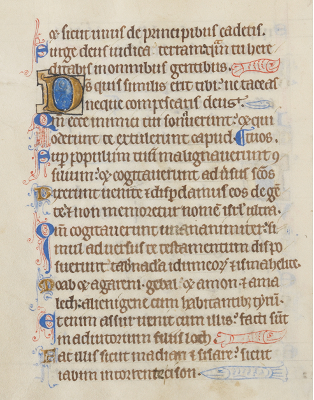 et sicut unus de principibus cadetis.
Surge deus iudica terram: qm̄ tu here
ditabis in omnibus gentibus.
Ds̄ quis similis erit tibi: ne taceas
neque compescaris deus:
Qm̄ ecce inimici tui sonuerunt: et qui
oderunt te extulerunt capud.
Sup populum tuū malignauerunt 9
silium: et cogitauerunt adusus sc̄os tuos.
Dixerunt uenite et disꝑdamus eos de gē
te: et non memoretur nomē isrl ultra.
Qm̄ cogitauerunt unanimiter: si
mul aduersus te testamentum dispo
suerunt tab̄nacla idumeorꝝ et ismahelite.
Moab et agareni. gebal et amon et ama
lech: alienigene cum habitantib; tyrū.
Etenim assur uenit cum illis: facti sūt
in adiutorium filiis loth.
Fac illis sicut madian et sisare: sicut
iabin in torrente cison.